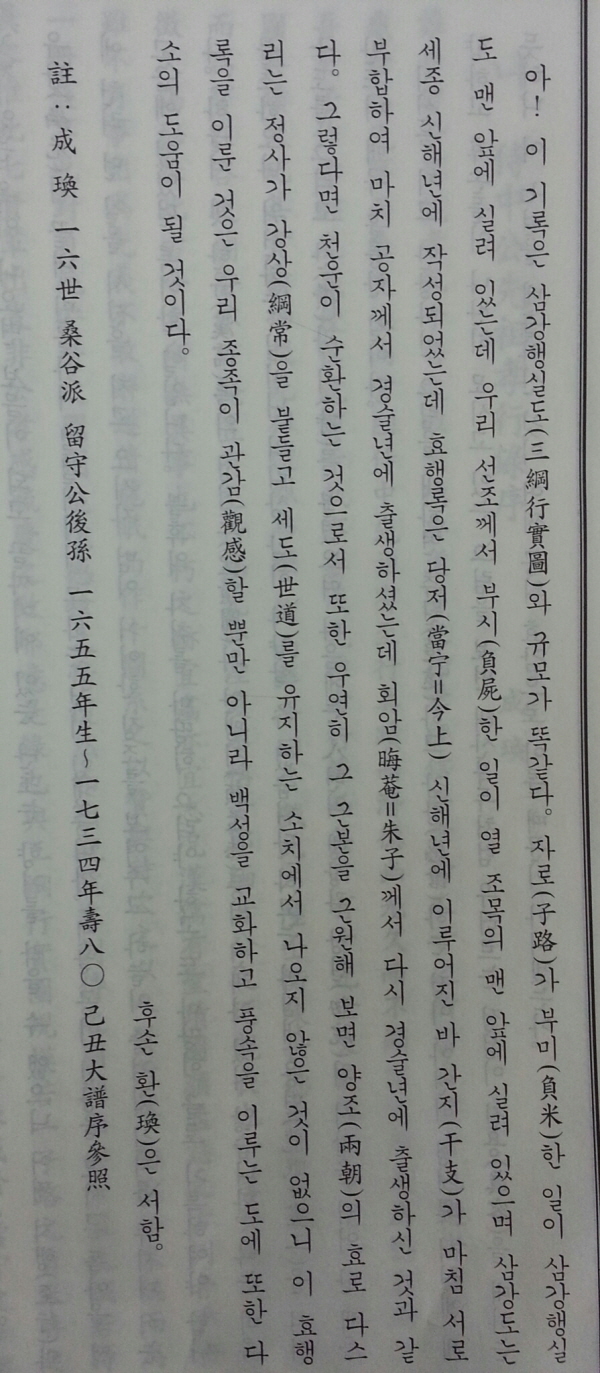 아! 이 기록은 삼강행실도(三綱行實圖)와 규모가 똑같다. 자로(子路)가 부미(負米)한 일이 삼강행실
도 맨 앞에 실려 있는데 우리 선조께서 부시(負屍)한 일이 열 조목의 맨 앞에 실려 있으며 삼강도는
세종 신해년에 작성되었는데 효행록은 당저(當宁=今上) 신해년에 이루어진 바 간지(干支)가 마침 서로
부합하여 마치 공자께서 경술년에 출생하셨는데 회암(晦菴=朱子)께서 다시 경술년에 출생하신 것과 같
다. 그렇다면 천운이 순환하는 것으로서 또한 우연히 그 근본을 근원해 보면 양조(兩朝)의 효로 다스
리는 정사가 강상(綱常)을 붙들고 세도(世道)를 유지하는 소치에서 나오지 않은 것이 없으니 이 효행
록을 이룬 것은 우리 종족이 관감(觀感)할 뿐만 아니라 백성을 교화하고 풍속을 이루는 도에 또한 다
소의 도움이 될 것이다.
후손 환(瑍)은 서함.
註：成 瑍 一六世 桑谷派 留守公後孫 一六五五年生~一七三四年壽八〇 己丑大譜序參照